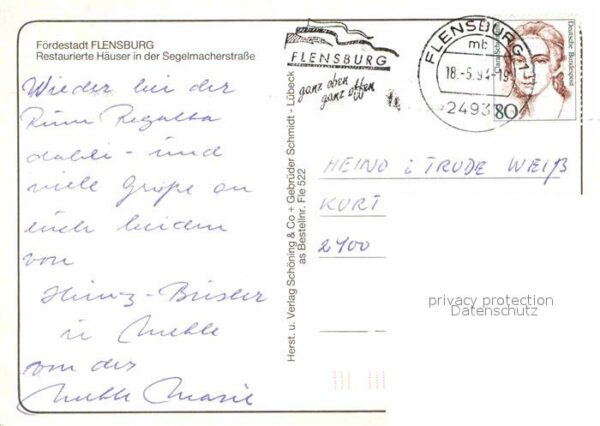 Fördestadt FLENSBURG
Restaurierte Häuser in der Segelmacherstraße
Wieder bei der
Rum Regatta
dabei - und
viele Grüße an
euch beiden
von
Heinz-
u
von der
Herst. u. Verlag Schöning & Co + Gebrüder Schmidt - Lübeck
as Bestellnr. Fle 522
FLENSBURG
ganz oben
ganz offen
FLENSBURG 1
mb
18.-5.94-19
2493
Deutsche Bundespost
80
HEINO i TRUDE WEIß
KURT
2400
privacy protection
Datenschutz